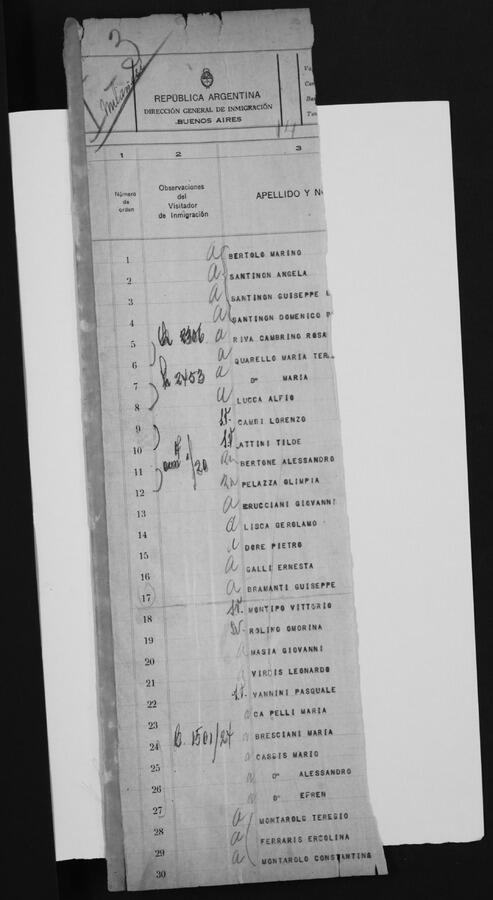 3
REPÚBLICA ARGENTINA
DIRECCIÓN GENERAL DE INMIGRACIÓN
BUENOS AIRES
1 2 3
Número de orden
Observaciones del Visitador de Inmigración
APELLIDO Y N
1 a BERTOLO MARINO
2 a SANTINON ANGELA
3 a SANTINON GUISEPPE
4 a SANTINON DOMENICO
5 a RIVA CAMBRINO ROSA
6 a QUARELLO MARIA TER
7 2453 Dº MARIA
8 a LUCCA ALFIO
9 CAMBI LORENZO
10 ATTINI TILDE
11 /20 BERTONE ALESSANDRO
12 PELAZZA OLIMPIA
13 a BRUCCIANI GIOVANNI
14 a LISCA GEROLAMO
15 DORE PIETRO
16 a GALLI ERNESTA
17 a BRAMANTI GUISEPPE
18 MONTIPO VITTORIO
19 ROLINO OMORINA
20 a MASIA GIOVANNI
21 VIRDIS LEONARDO
22 VANNINI PASQUALE
23 a CA PELLI MARIA
24 a BRESCIANI MARIA
25 a CASSIS MARIO
26 a Dº ALESSANDRO
27 a Dº EFREN
28 a MONTAROLO TERESIO
29 a FERRARIS ERCOLINA
30 a MONTAROLO CONSTANTINO